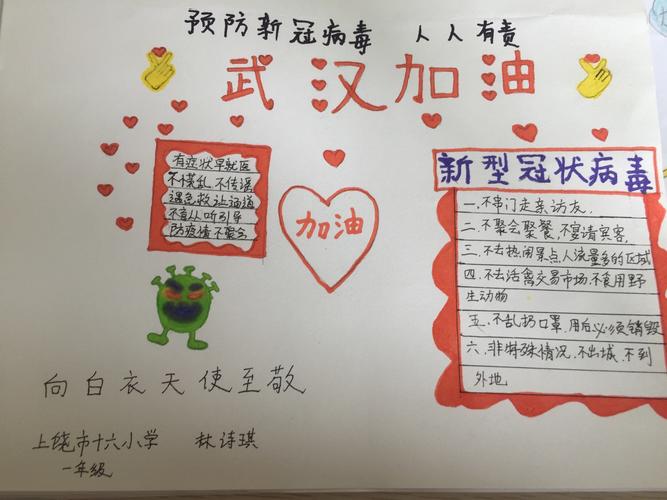 预防新冠病毒 人人有责
武汉加油
有症状早就医
不慌乱 不传谣
遇急救 让通道
不盲从 听引导
防疫情 不聚会
加油
新型冠状病毒
一.不串门走亲访友,
二.不聚会聚餐,不宴请宾客,
三.不去热闹景点人流量多的区域
四.不去活禽交易市场.不食用野
生动物
五.不乱扔口罩,用后必须销毁
六.非特殊情况,不出城,不到
外地
向白衣天使至敬
上饶市十六小学 林诗琪
一年级